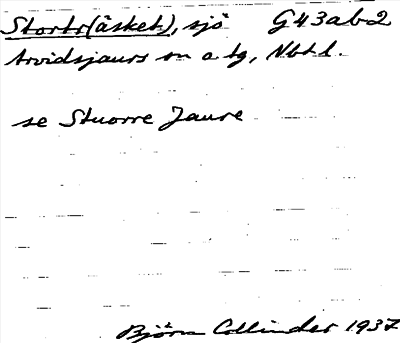 Stortr(äsket), sjö G43ab2
Arvidsjaurs sn a tg, Nbtl.
se Stuorre Jaure
Björn Collinder 1937